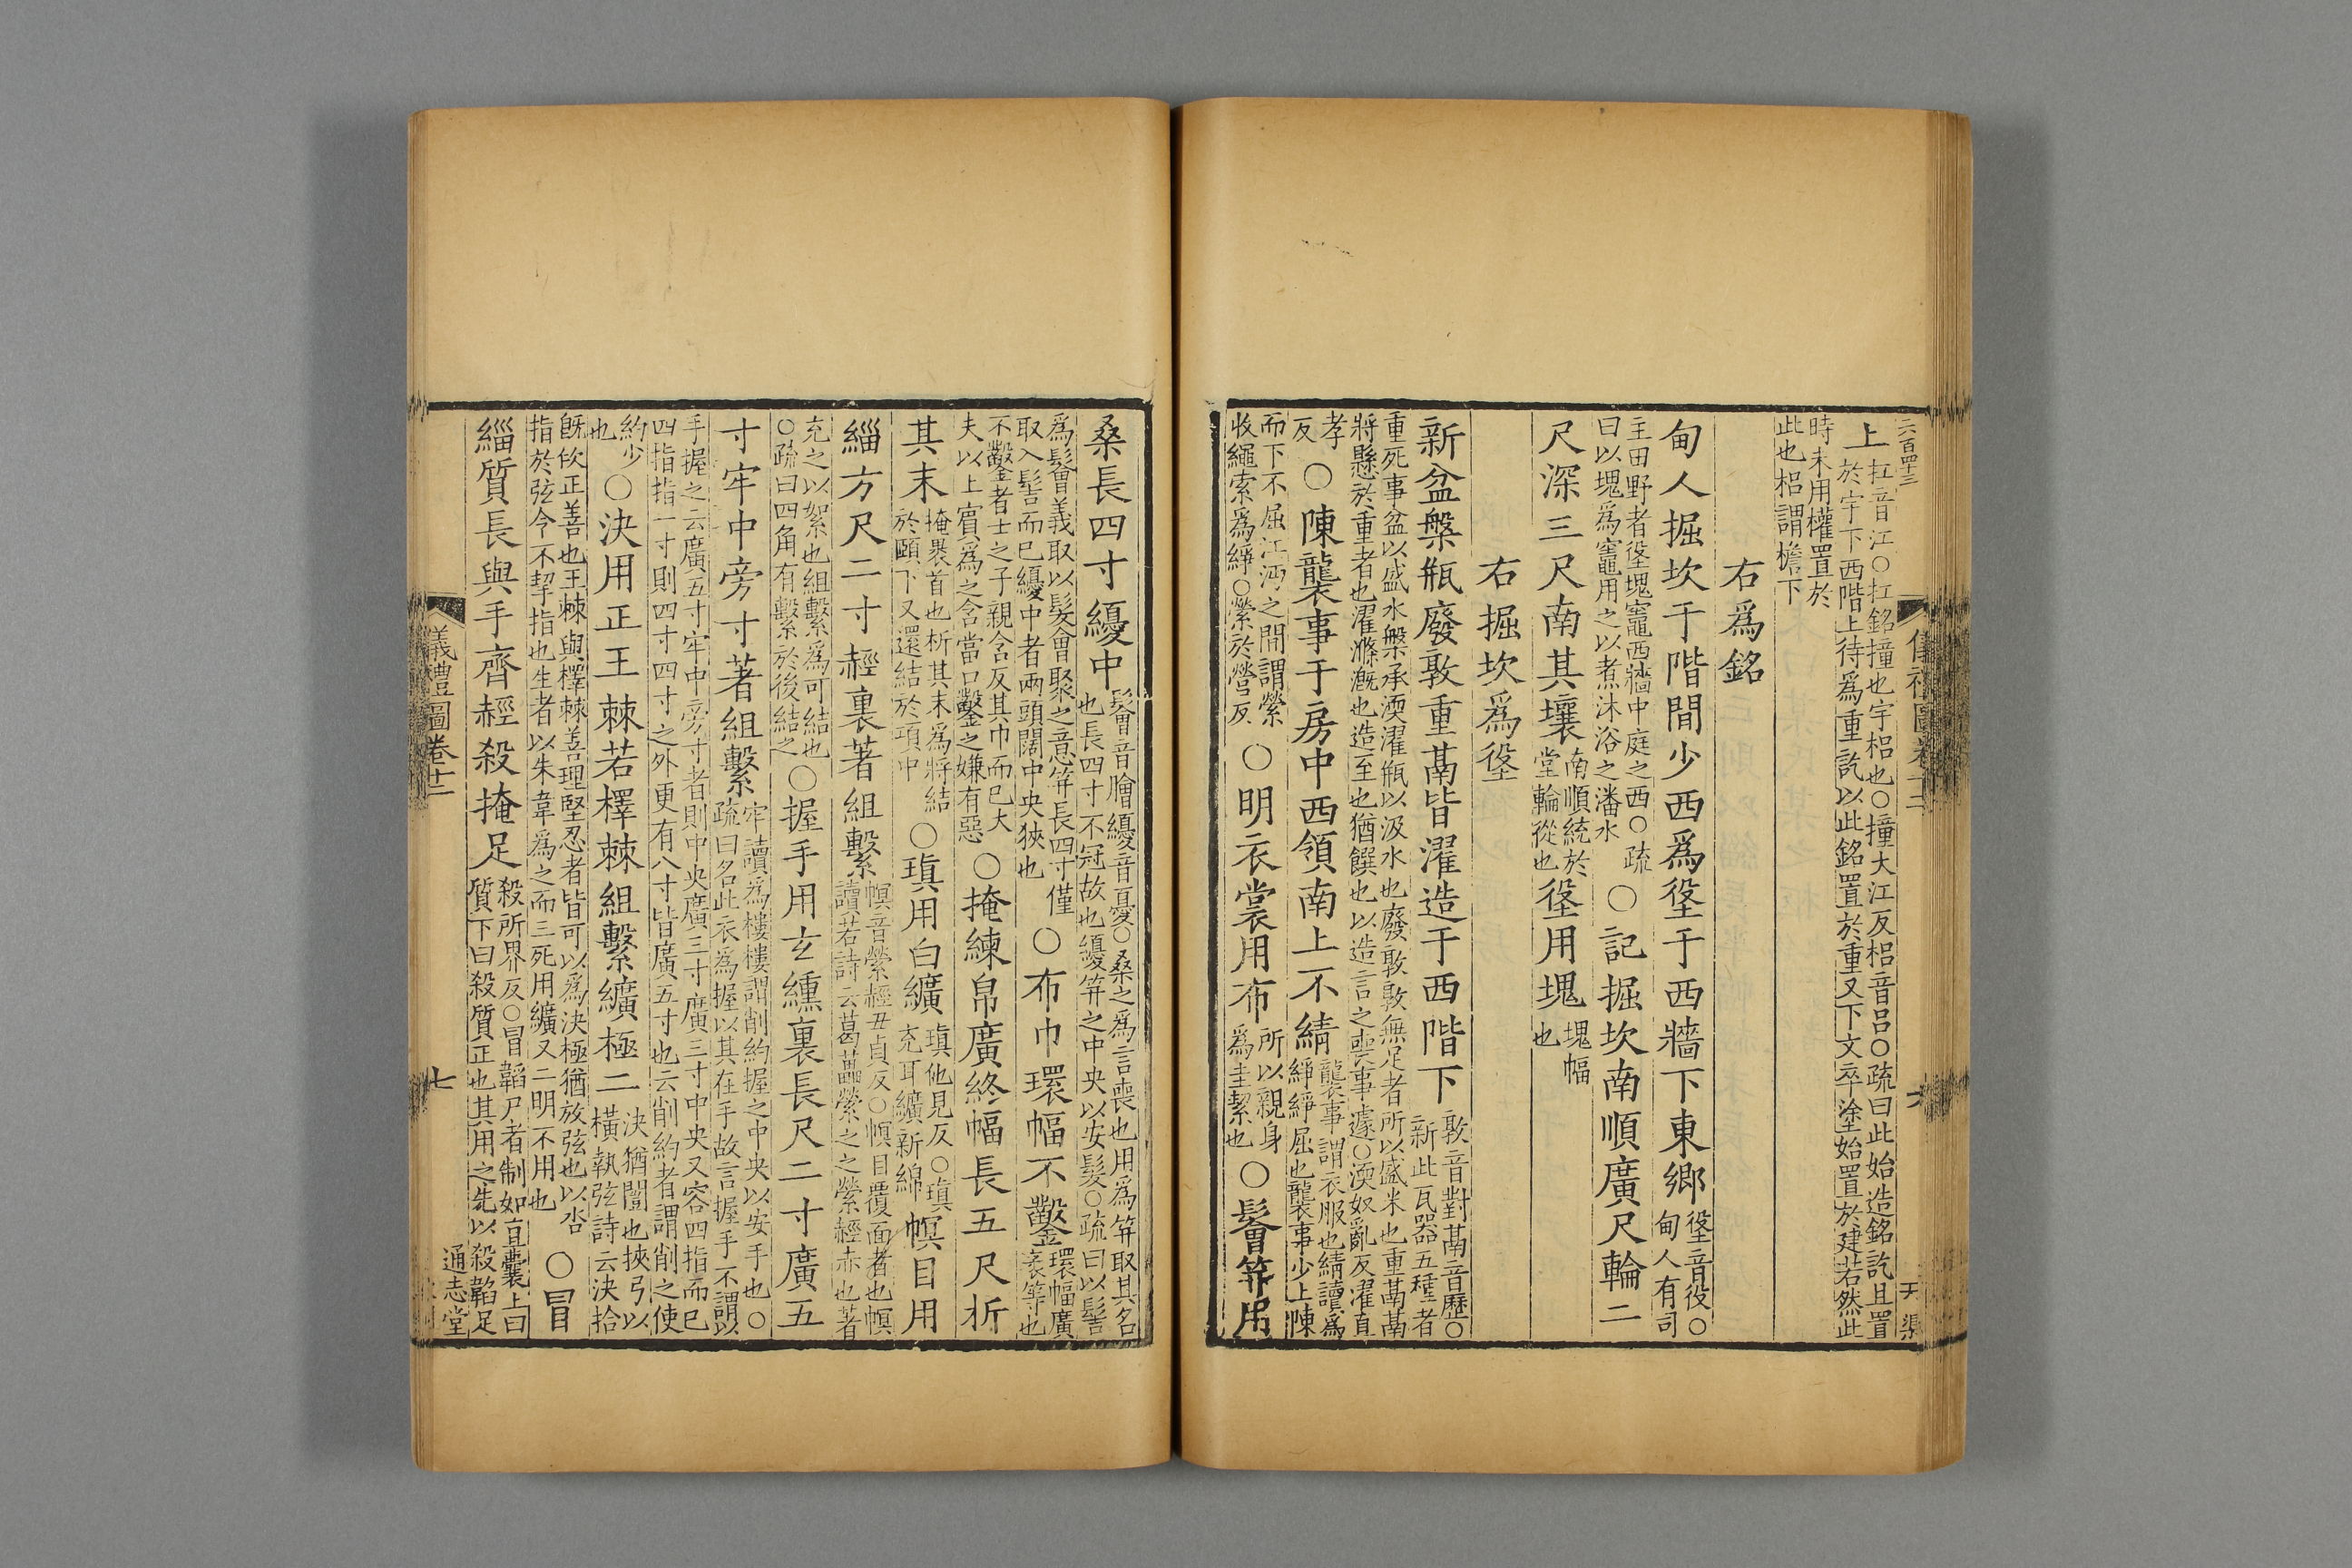 六百四十三
上 杠音江○杠銘撞也宇梠也○撞大江反梠音吕○疏曰此始造銘訖且置
於宇下西階上待爲重訖以此銘置於重又下文卒塗始置於建若然此
時未用權置於
此也梠謂檐下
右爲銘
甸人掘坎于階閒少西爲垼于西牆下東鄉 垼音役○
甸人有司
主田野者垼塊竈西牆中庭之西○疏
曰以塊爲竈用之以煮沐浴之潘水 ○記掘坎南順廣尺輪二
尺深三尺南其壤 南順統於
堂輪從也 垼用塊 塊堛
也
右掘坎爲垼
新盆槃瓶廢敦重鬲皆濯造于西階下 敦音對鬲音歷○
新此瓦器五種者
重死事盆以盛水槃承渜濯瓶以汲水也廢敦敦無足者所以盛米也重鬲鬲
將縣於重者也濯滌溉也造至也猶饌也以造言之喪事遽○渜奴亂反濯直
孝
反 ○陳襲事于房中西領南上不綪 襲事謂衣服也綪讀爲
絳絳屈也襲事少上陳
而下不屈江沔之閒謂縈
收繩索爲絳○縈於營反 ○明衣裳用布 所以親身
爲圭絜也 ○鬠笄用
桑長四寸纋中 鬠音膾纋音憂○桑之爲言喪也用爲笄取其名
也長四寸不冠故也纋笄之中央以安髮○疏曰以髻
爲鬠義取以髮會聚之意笄長四寸僅
取入髻而已纋中者兩頭闊中央狹也 ○布巾環幅不鑿 環幅廣
袤等也
不鑿者士之子親含反其巾而已大
夫以上賓爲之含當口鑿之嫌有惡 ○掩練帛廣終幅長五尺析
其末 掩裹首也析其末爲將結
於頤下又還結於項中 ○瑱用白纊 瑱他見反○瑱
充耳纊新綿 幎目用
緇方尺二寸䞓裏著組繫 幎音縈䞓丑貞反○幎目覆面者也幎
讀若詩云葛藟縈之之縈䞓赤也著
充之以絮也組繫爲可結也
○疏曰四角有繫於後結之 ○握手用玄纁裏長尺二寸廣五
寸牢中旁寸著組繫 牢讀爲樓樓謂削約握之中央以安手也○
疏曰名此衣爲握以其在手故言握手不謂以
手握之云廣五寸牢中旁寸者則中央廣三寸廣三寸中央又容四指而已
四指指一寸則四寸四寸之外更有八寸皆廣五寸也云削約者謂削之使
約少
也 ○決用正王棘若檡棘組繫纊極二 決猶闓也挾弓以
橫執弦詩云決拾
旣佽正善也王棘與檡棘善理堅忍者皆可以爲決極猶放弦也以沓
指放弦令不挈指也生者以朱韋爲之而三死用纊又二明不用也 ○冒
緇質長與手齊䞓殺掩足 殺所界反○冒韜尸者制如直囊上曰
質下曰殺質正也其用之先以殺韜足
儀禮圖卷十二
七
通志堂